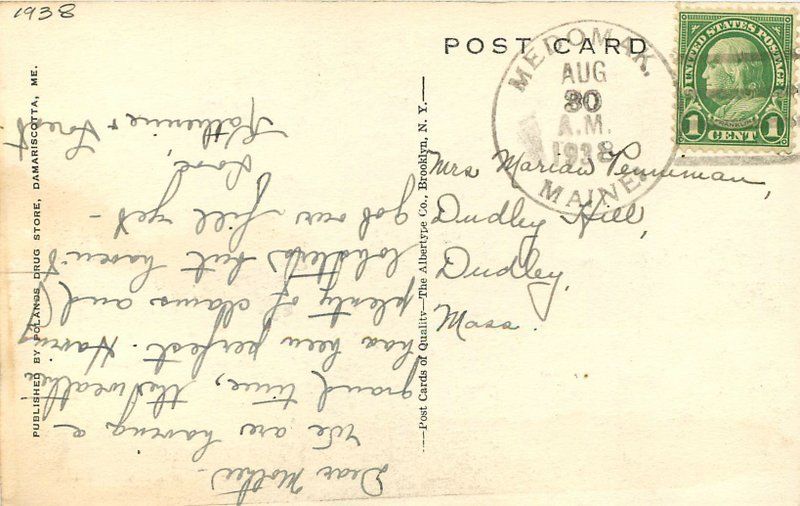 1938
POST CARD
MEDOMAK,
AUG
30
A.M.
1938
MAINE.
UNITED STATES POSTAGE
FRANKLIN
1 CENT 1
Mrs Marian Penniman,
Dudley Hill,
Dudley,
Mass.
Dear Mother -
We are having a
grand time, the weather
has been perfect. Having
plenty of clams and
lobsters but haven't
got our fill yet -
Love,
Katherine + Forest
—Post Cards of Quality—The Albertype Co., Brooklyn, N. Y.—
PUBLISHED BY POLANDS DRUG STORE, DAMARISCOTTA, ME.